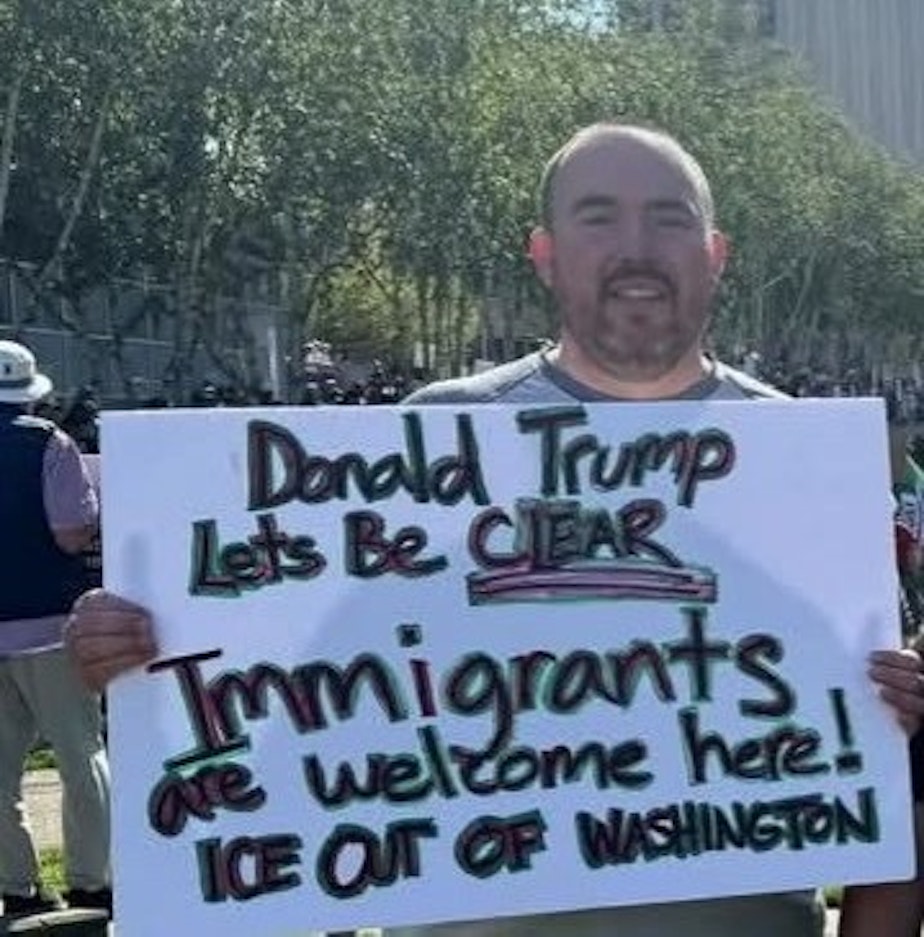 Donald Trump
Lets Be CLEAR
Immigrants
are welcome here!
ICE OUT OF WASHINGTON